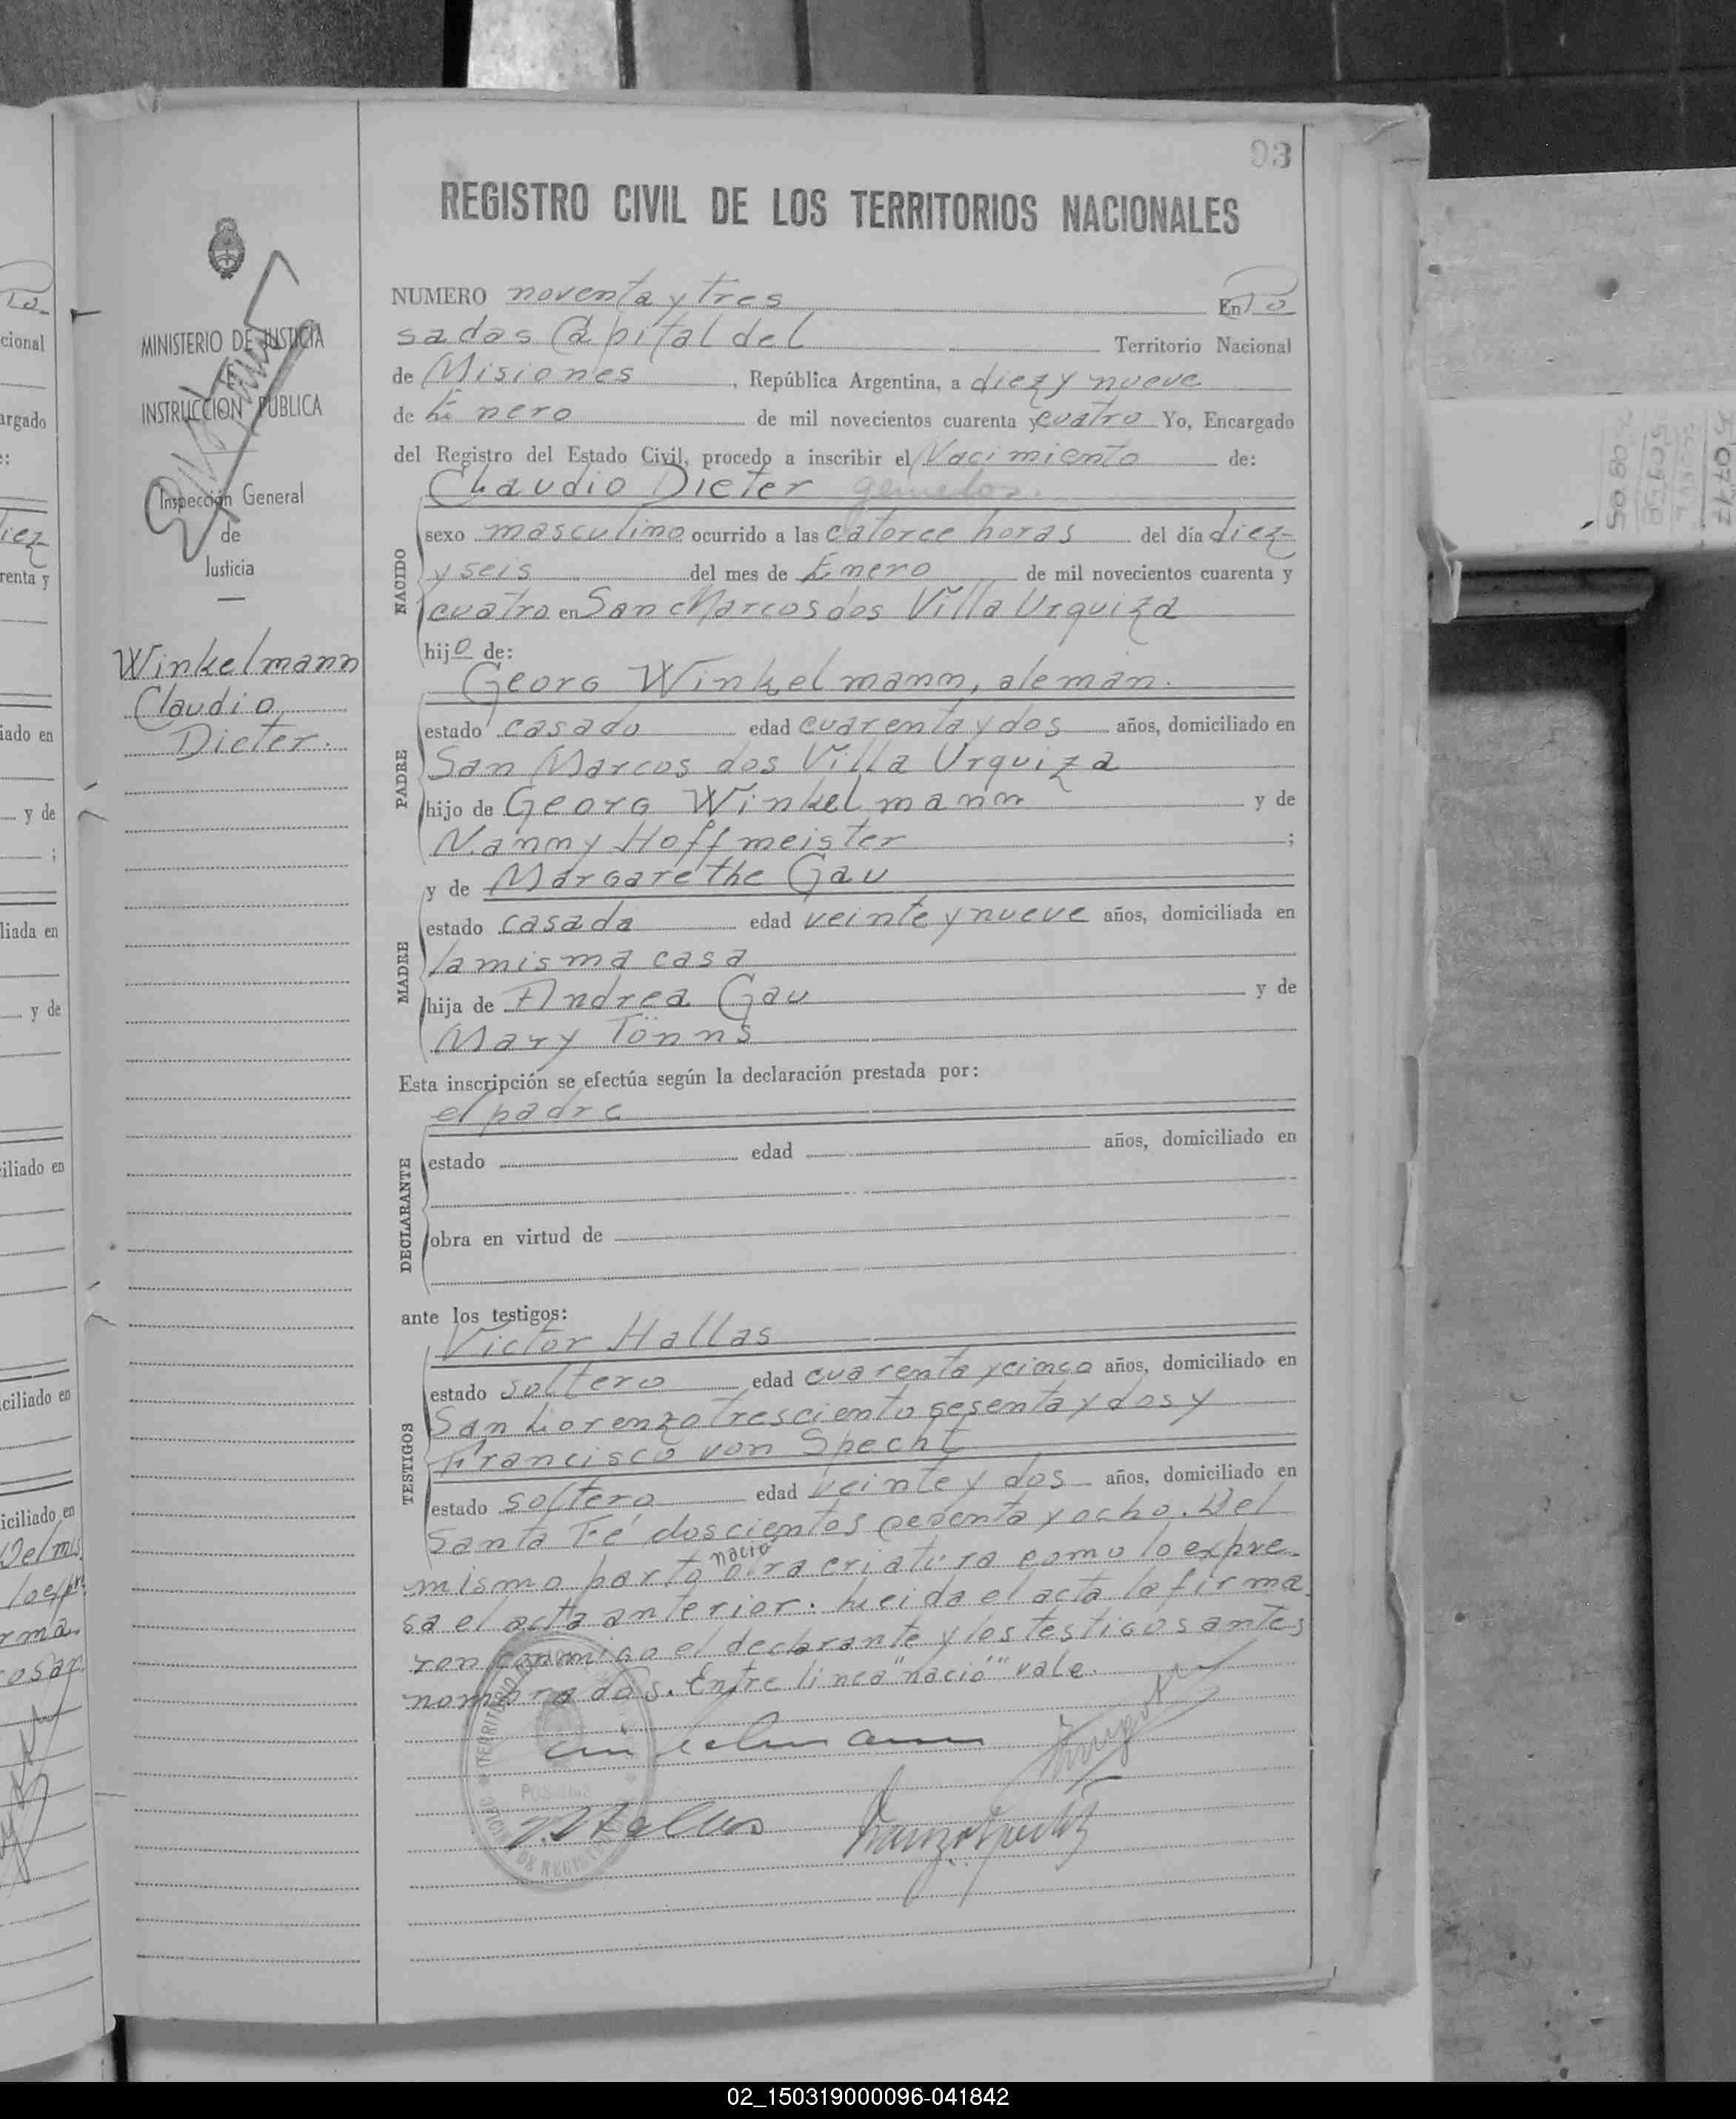 93
REGISTRO CIVIL DE LOS TERRITORIOS NACIONALES
MINISTERIO DE JUSTICIA
E
INSTRUCCIÓN PUBLICA
Inspección General
de
Justicia
Winkelmann
Claudio
Dieter.
NUMERO noventa y tres En Po
sadas Capital del Territorio Nacional
de Misiones, República Argentina, a diez y nueve
de Enero de mil novecientos cuarenta y cuatro Yo, Encargado
del Registro del Estado Civil, procedo a inscribir el Nacimiento de:
Claudio Dieter gemelos.
NACIDO
sexo masculino ocurrido a las catorce horas del día diez
y seis del mes de Enero de mil novecientos cuarenta y
cuatro en San Marcos dos Villa Urquiza
hijo de:
Georg Winkelmann, alemán.
PADRE
estado casado edad cuarenta y dos años, domiciliado en
San Marcos dos Villa Urquiza
hijo de Georg Winkelmann y de
Nanny Hoffmeister ;
y de Margarethe Gau
MADRE
estado casada edad veinte y nueve años, domiciliada en
la misma casa
hija de Andrea Gau y de
Mary Tönns
Esta inscripción se efectúa según la declaración prestada por:
el padre
DECLARANTE
estado edad años, domiciliado en
obra en virtud de
ante los testigos:
Victor Hallas
TESTIGOS
estado soltero edad cuarenta y cinco años, domiciliado en
San Lorenzo tresciento sesenta y dos y
Francisco von Specht
estado soltero edad veinte y dos años, domiciliado en
Santa Fé doscientos sesenta y ocho. Del
mismo parto nació otra criatura como lo expre-
sa el acta anterior. Leida el acta la firma
ron conmigo el declarante y los testigos antes
nombrados. Entre linea "nació" vale.
POSADAS
02_150319000096-041842